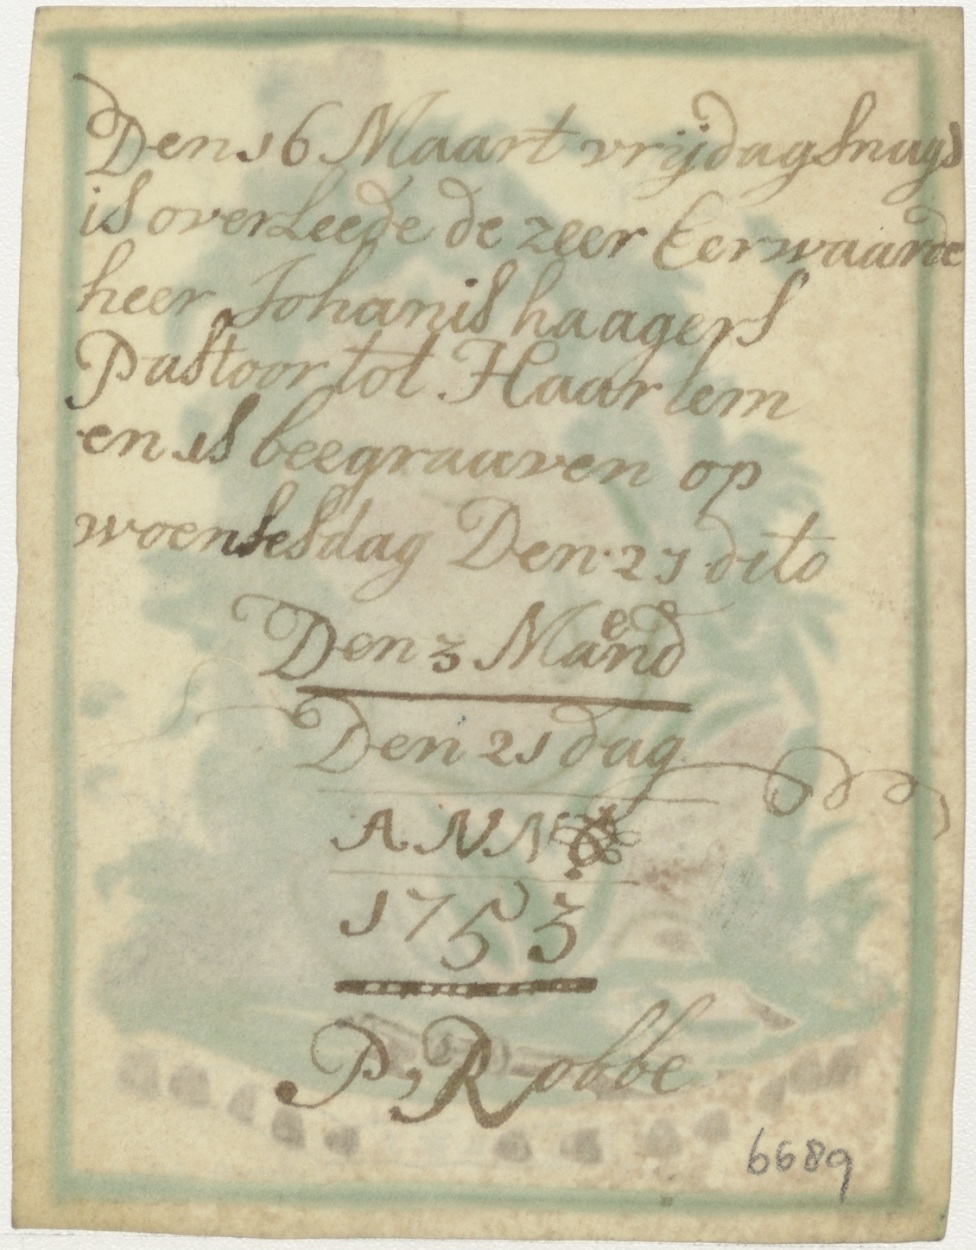 Den 16 Maart vrijdagsnags
is overleede de zeer Eerwaarde
heer Johanis haagers
Pastoor tot Haarlem
en is beegraaven op
woensesdag Den 21 dito
Den 3 Maend
Den 21 dag
ANNO
1753
P, Robbe
6689